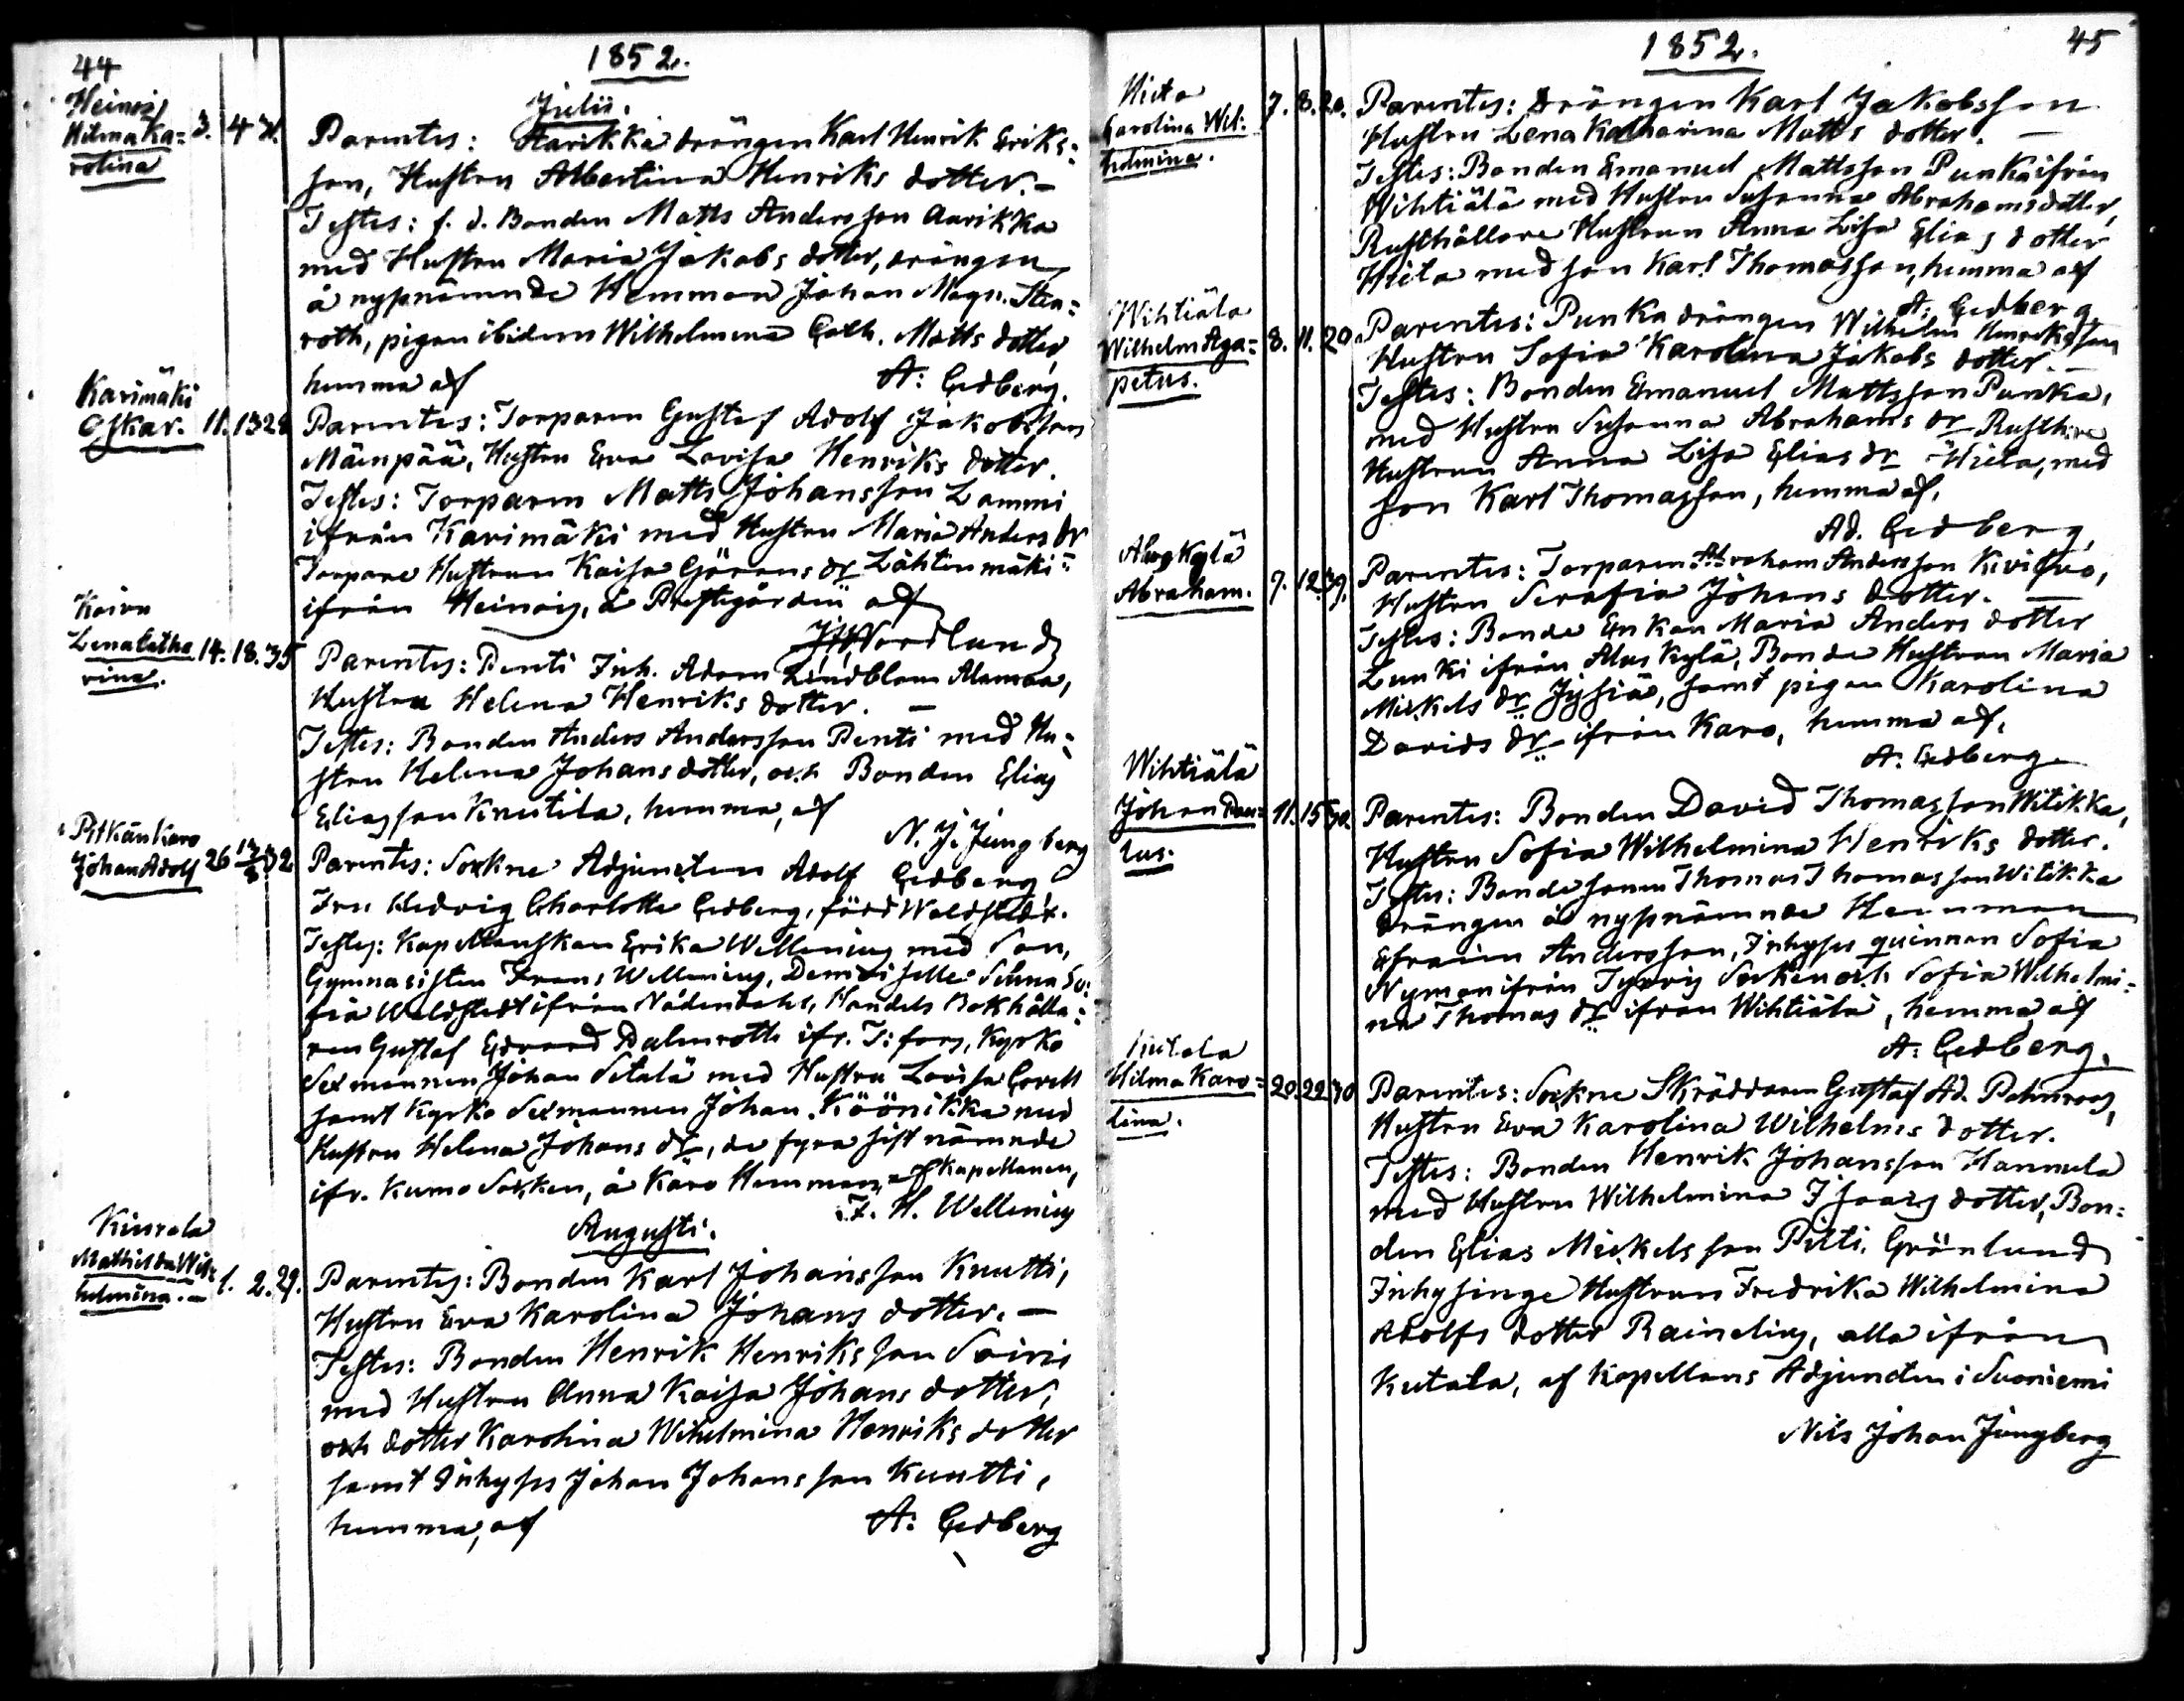 44
1852.
Julii.
Heinois
Hilma Ka=
rolina
3. 4 31.
Parentes: Aarikka drängen Karl Henrik Eriks=
son, Hustru Albertina Henriks dotter. —
Testes: f. d. Bonden Matts Andersson Aarikka
med Hustru Maria Jakobs dotter, drängen
å nyssnämnde Hemman Johan Magn. Sten=
roth, pigan ibidem Wilhelmina Cath. Matts dotter,
hemma af A: Gedberg.
Karimäki
Oskar.
11. 13 28
Parentes: Torparen Gustaf Adolf Jakobsson
Mäenpää, Hustru Eva Lovisa Henriks dotter.
Testes: Torparen Matts Johansson Lammi
ifrån Karimäki med Hustru Maria Anders dr
Torpare Hustrun Kaisa Görans dr Lähtenmäki
ifrån Heinois, å Prestgården af
Nordlund
Koivu
Lena Catha
rina.
14. 18. 35
Parentes: Penti Inh. Adam Lindblom Alamaa,
Hustru Helena Henriks dotter. —
Testes: Bonden Anders Andersson Penti med Hu=
stru Helena Johans dotter, och Bonden Elias
Eliasson Knutila, hemma, af
N. J. Jungberg
Pitkän Karo
Johan Adolf
26 32
Parentes: Sockne Adjuncten Adolf Gedberg
Fru Hedvig Charlotta Gedberg, född Waldstedt.
Testes: Kapellanskan Erika Wellenius med Son,
Gymnasisten Frans Wellenius, Demoiselle Selma So=
fia Waldstedt ifrån Nådendahl, Handels Bokhålla=
ren Gustaf Edvard Dalmroth ifr. T:fors, Kyrko
Sexmannen Johan Setalä med Hustru Lovisa Corell
samt Kyrko Sexmannen Johan Köönikka med
Hustru Helena Johans dr, de fyra sist nämnde
ifr. Kumo Socken, å Karo Hemman, af Kapellanen,
F. H. Wellenius
Augusti.
Kiurala
Mathilda Wil=
helmina. —
1. 2. 29.
Parentes: Bonden Karl Johansson Knutti,
Hustru Eva Karolina Johans dotter. —
Testes: Bonden Henrik Henriksson Soinis
med Hustru Anna Kaisa Johans dotter,
och dotter Karolina Wilhelmina Henriks dotter
samt Inhyses Johan Johansson Knutti,
hemma, af A: Gedberg
1852.
45
Hieta
Carolina Wil:
helmina.
7. 8. 20.
Parentes: Drängen Karl Jakobsson
Hustru Lena Katharina Matts dotter. —
Testes: Bonden Emanuel Mattsson Punka ifrån
Wihtiälä med Hustru Susanna Abrahamsdotter,
Rusthållare Hustrun Anna Lisa Elias dotter
Hieta med son Karl Thomasson, hemma af
A: Gedberg
Wihtiälä
Wilhelm Aga=
petus.
8. 11. 20.
Parentes: Punka drängen Wilhelm Henriksson
Hustru Sofia Karolina Jakobs dotter. —
Testes: Bonden Emanuel Mattsson Punka,
med Hustru Susanna Abrahams dr
Hustrun Anna Lisa Elias dr Hieta, med
son Karl Thomasson, hemma af,
Ad. Gedberg,
Aluskylä
Abraham.
9. 12. 39.
Parentes: Torparen Abraham Andersson Kivisuo,
Hustru Serafia Johans dotter. —
Testes: Bonde Enkan Maria Anders dotter
Lunki ifrån Aluskylä, Bonde Hustrun Maria
Mickels dr Jyssiä, samt pigan Karolina
Davids dr ifrån Karo, hemma af,
A: Gedberg
Wihtiälä
Johan Pau=
lus.
11. 15 30.
Parentes: Bonden David Thomasson Witikka,
Hustru Sofia Wilhelmina Henriks dotter.
Testes: Bondesonen Thomas Thomasson Witikka
Drängen å nyssnämnde Hemman
Efraim Andersson, Inhyses quinnan Sofia
Nyman ifrån Tyrvis Socken och Sofia Wilhelmi=
na Thomas dr ifrån Wihtiälä, hemma, af
A: Gedberg,
Kutala
Hilma Karo=
lina.
20. 22 30
Parentes: Sockne Skräddaren Gustaf Ad. Palmroos,
Hustru Eva Karolina Wilhelms dotter.
Testes: Bonden Henrik Johansson Hannula
med Hustru Wilhelmina Isaacs dotter, Bon=
den Elias Mickelsson Pitti, Grönlund
Inhysinge Hustrun Fredrika Wilhelmina
Adolfs dotter Rainelius, alla ifrån
Kutala, af Kapellans Adjuncten i Suoniemi
Nils Johan Jungberg